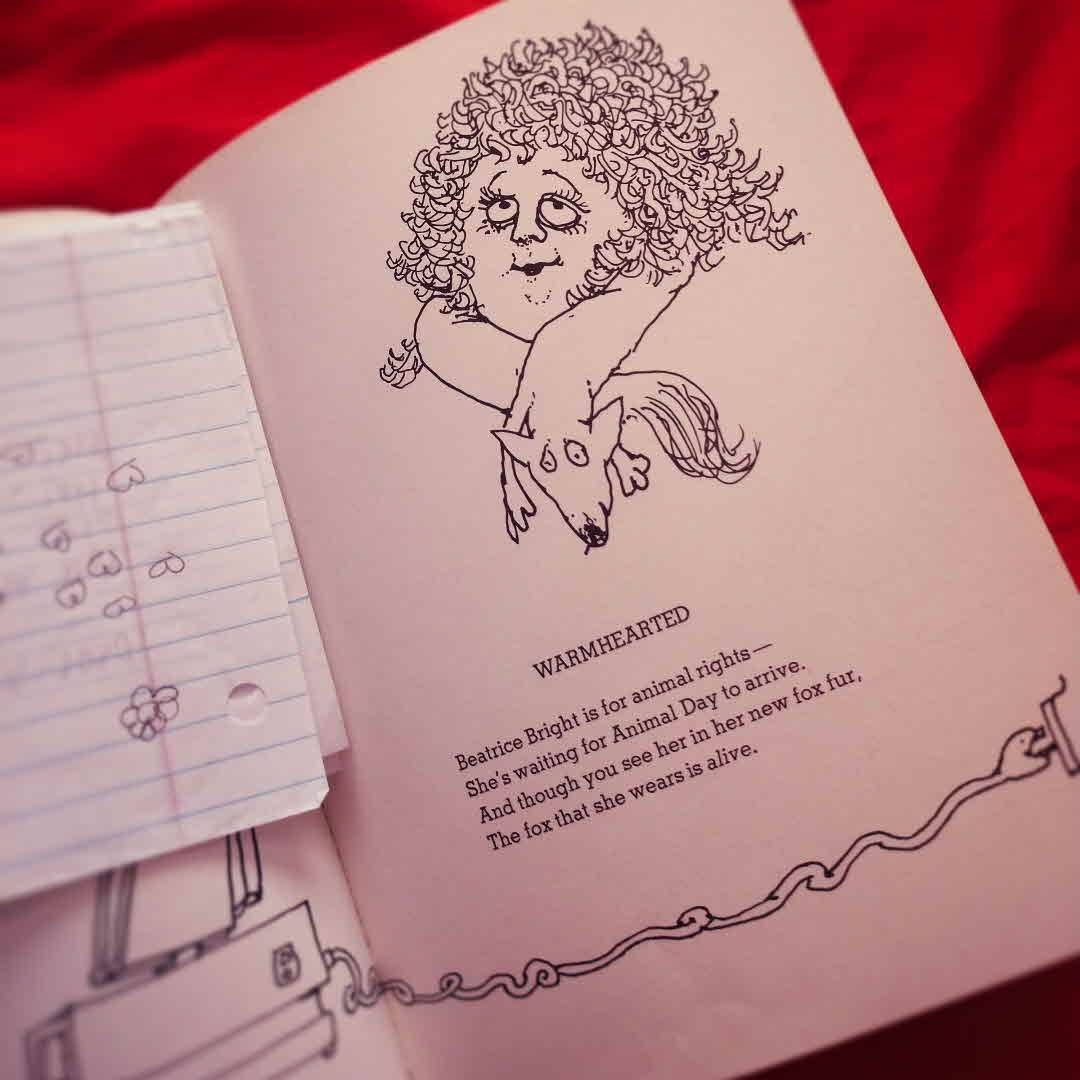 WARMHEARTED
Beatrice Bright is for animal rights—
She's waiting for Animal Day to arrive.
And though you see her in her new fox fur,
The fox that she wears is alive.